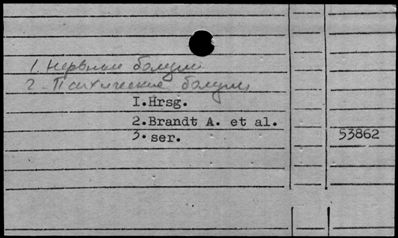 1. Нервные болезни
2. Психические болезни
I.Hrsg.
2.Brandt A. et al.
3.ser.
53862